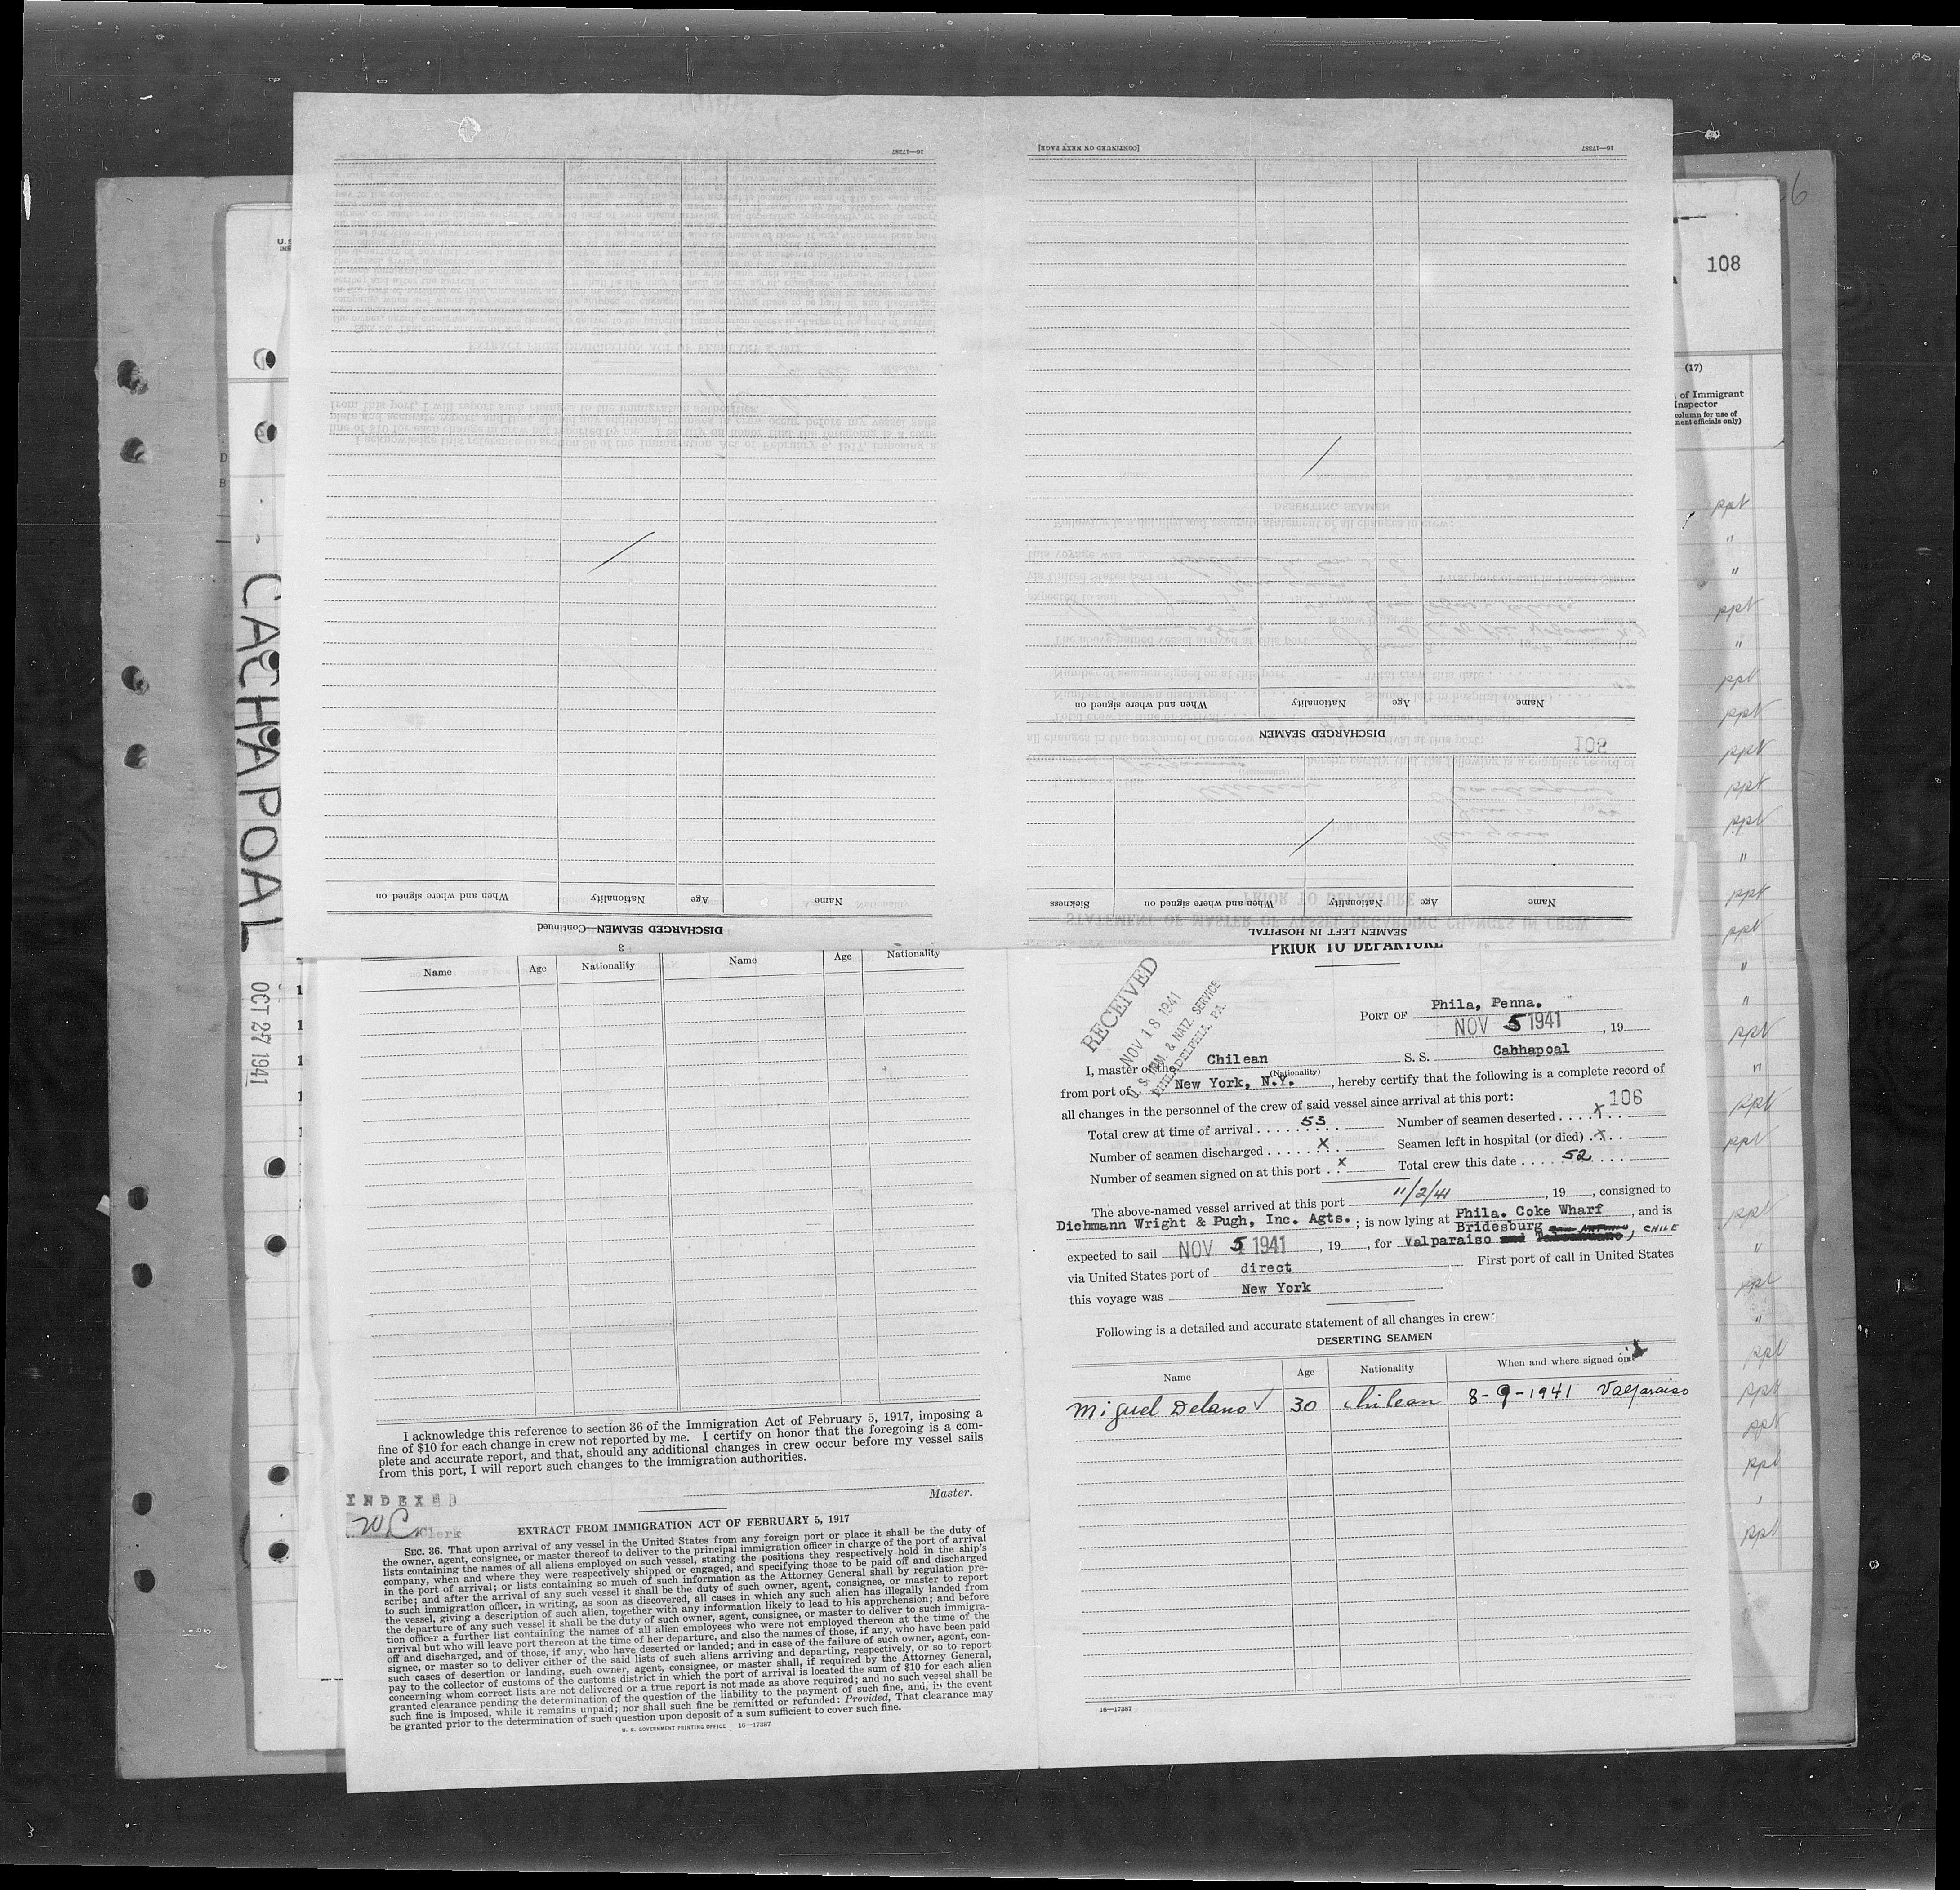 16—17387
[CONTINUED ON NEXT PAGE]
16—17387
108
(17)
of Immigrant
Inspector
column for use of
ment officials only)
CACHAPOAL
OCT 27 1941
When and where signed on
Nationality
Age
Name
DISCHARGED SEAMEN—Continued
3
When and where signed on
Nationality
Age
Name
DISCHARGED SEAMEN
Sickness
When and where signed on
Nationality
Age
Name
SEAMEN LEFT IN HOSPITAL
ppt
"
"
ppt
"
ppt
ppt
ppt
ppt
ppt
"
ppt
ppt
"
"
ppt
"
ppt
ppt
ppt
"
ppt
"
ppt
ppt
ppt
ppt
ppt
Name Age Nationality Name Age Nationality
I acknowledge this reference to section 36 of the Immigration Act of February 5, 1917, imposing a
fine of $10 for each change in crew not reported by me. I certify on honor that the foregoing is a com-
plete and accurate report, and that, should any additional changes in crew occur before my vessel sails
from this port, I will report such changes to the immigration authorities.
Master.
INDEXED
WC Clerk
EXTRACT FROM IMMIGRATION ACT OF FEBRUARY 5, 1917
SEC. 36. That upon arrival of any vessel in the United States from any foreign port or place it shall be the duty of
the owner, agent, consignee, or master thereof to deliver to the principal immigration officer in charge of the port of arrival
lists containing the names of all aliens employed on such vessel, stating the positions they respectively hold in the ship's
company, when and where they were respectively shipped or engaged, and specifying those to be paid off and discharged
in the port of arrival; or lists containing so much of such information as the Attorney General shall by regulation pre-
scribe; and after the arrival of any such vessel it shall be the duty of such owner, agent, consignee, or master to report
to such immigration officer, in writing, as soon as discovered, all cases in which any such alien has illegally landed from
the vessel, giving a description of such alien, together with any information likely to lead to his apprehension; and before
the departure of any such vessel it shall be the duty of such owner, agent, consignee, or master to deliver to such immigra-
tion officer a further list containing the names of all alien employees who were not employed thereon at the time of the
arrival but who will leave port thereon at the time of her departure, and also the names of those, if any, who have been paid
off and discharged, and of those, if any, who have deserted or landed; and in case of the failure of such owner, agent, con-
signee, or master so to deliver either of the said lists of such aliens arriving and departing, respectively, or so to report
such cases of desertion or landing, such owner, agent, consignee, or master shall, if required by the Attorney General,
pay to the collector of customs of the customs district in which the port of arrival is located the sum of $10 for each alien
concerning whom correct lists are not delivered or a true report is not made as above required; and no such vessel shall be
granted clearance pending the determination of the question of the liability to the payment of such fine, and, in the event
such fine is imposed, while it remains unpaid; nor shall such fine be remitted or refunded: Provided, That clearance may
be granted prior to the determination of such question upon deposit of a sum sufficient to cover such fine.
U. S. GOVERNMENT PRINTING OFFICE 16—17387
PRIOR TO DEPARTURE
RECEIVED
NOV 18 1941
U. S. IMM. & NATZ. SERVICE
PHILADELPHIA, PA.
PORT OF Phila, Penna.
NOV 5 1941, 19
I, master of the Chilean S. S. Cahhapoal
(Nationality)
from port of New York, N.Y., hereby certify that the following is a complete record of
all changes in the personnel of the crew of said vessel since arrival at this port:
106
Total crew at time of arrival 53 Number of seamen deserted x
Number of seamen discharged x Seamen left in hospital (or died) x
Number of seamen signed on at this port x Total crew this date 52
The above-named vessel arrived at this port 11/2/41, 19, consigned to
Dichmann Wright & Pugh, Inc. Agts.; is now lying at Phila. Coke Wharf, and is
Bridesburg
expected to sail NOV 5 1941, 19, for Valparaiso and Talcahuano, CHILE
via United States port of direct First port of call in United States
this voyage was New York
Following is a detailed and accurate statement of all changes in crew:
DESERTING SEAMEN
Name Age Nationality When and where signed on
Miguel Delano ✓ 30 chilean 8-9-1941 Valparaiso
16—17387